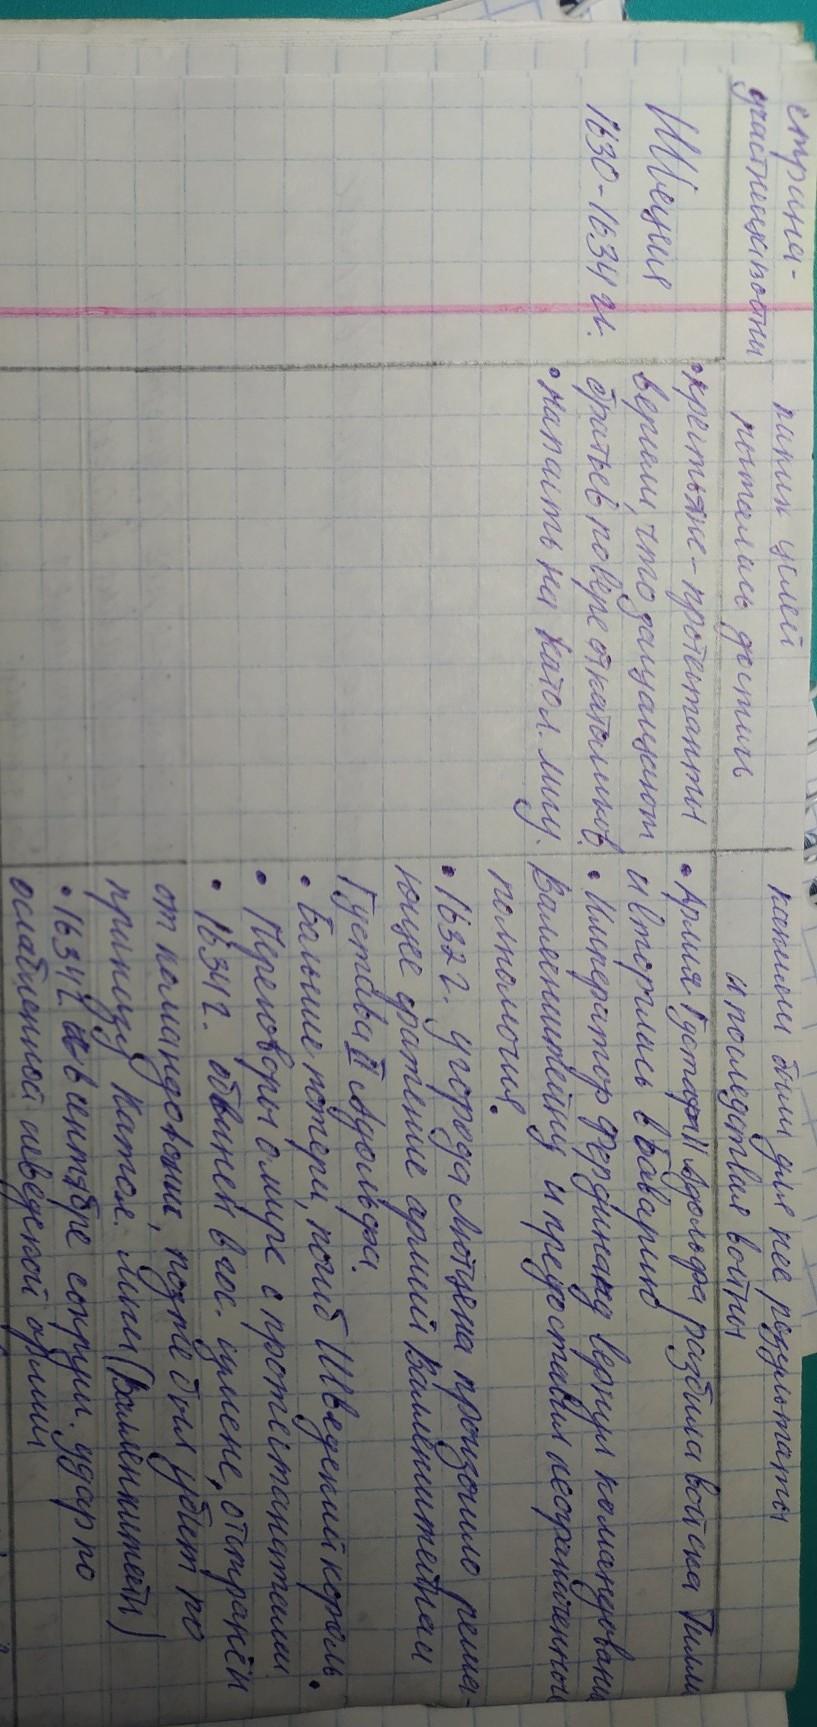 страна-
участница войны
Швеция
1630-1634 гг.
каких целей
пыталась достичь
• крестьяне-протестанты
верили, что защищают
братьев по вере от католиков.
• напасть на катол. лигу.
какими были для неё результаты
и последствия войны
• Армия Густава II Адольфа разбила войска Тилли
и вторглась в Баварию
• Император Фердинанд вернул командование
Валленштейну и предоставил неограниченные
полномочия.
• 1632 г. у города Лютцена произошло решa-
ющее сражение армий Валленштейна и
Густава II Адольфа.
• Большие потери, погиб Шведский король.
• Переговоры о мире с протестантами
• 1634 г. обвинен в гос. измене, отстранён
от командования, позже был убит по
приказу Катол. Лиги (Валленштейн)
• 1634 г. в сентябре сокруш. удар по
ослабленной шведской армии